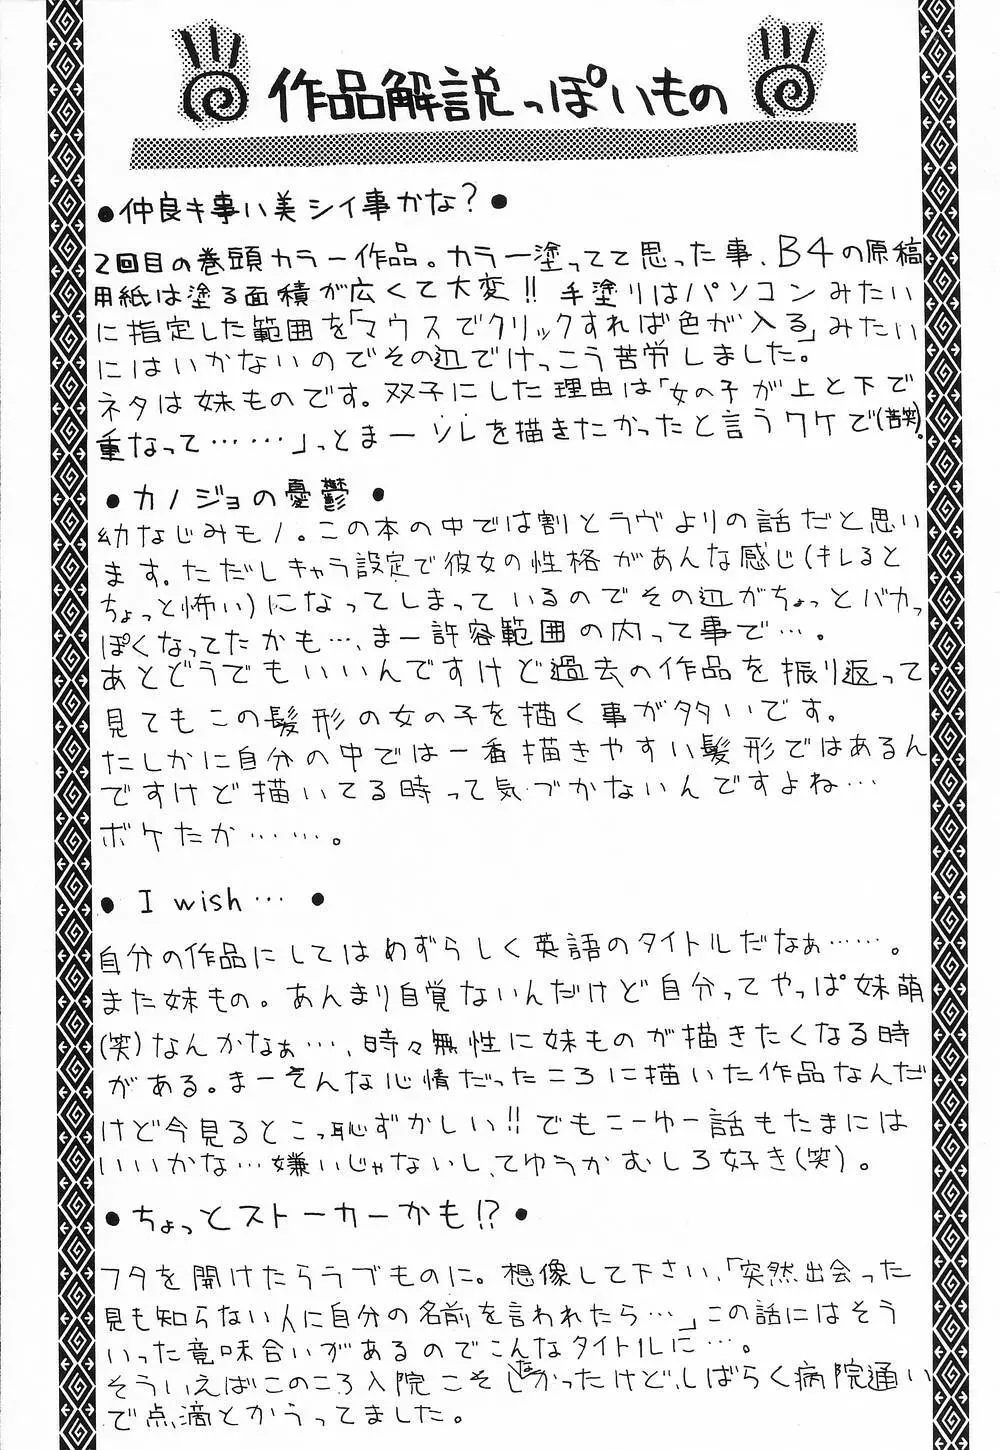 作品解説っぽいもの
●仲良キ事ハ美シイ事かな？●
2回目の巻頭カラー作品。カラー塗ってて思った事、B4の原稿
用紙は塗る面積が広くて大変!! 手塗りはパソコンみたい
に指定した範囲を「マウスでクリックすれば色が入る」みたい
にはいかないのでその辺でけっこう苦労しました。
ネタは妹ものです。双子にした理由は「女の子が上と下で
重なって……」っとまーソレを描きたかったと言うワケで(苦笑)。
●カノジョの憂鬱●
幼なじみモノ。この本の中では割とラヴよりの話だと思い
ます。ただしキャラ設定で彼女の性格があんな感じ(キレると
ちょっと怖い)になってしまっているのでその辺がちょっとバカっ
ぽくなってたかも…、まー許容範囲の内って事で…。
あとどうでもいいんですけど過去の作品を振り返って
見てもこの髪形の女の子を描く事が多いです。
たしかに自分の中では一番描きやすい髪形ではあるん
ですけど描いてる時って気づかないんですよね…
ボケたか……。
●I wish…●
自分の作品にしてはめずらしく英語のタイトルだなぁ……。
また妹もの。あんまり自覚ないんだけど自分ってやっぱ妹萌
(笑)なんかなぁ…、時々無性に妹ものが描きたくなる時
がある。まーそんな心情だったころに描いた作品なんだ
けど今見るとこっ恥ずかしい!! でもこーゆー話もたまには
いいかな…嫌いじゃないし、てゆうかむしろ好き(笑)。
●ちょっとストーカーかも!?●
フタを開けたらラブものに。想像して下さい、「突然出会った
見も知らない人に自分の名前を言われたら…」この話にはそう
いった意味合いがあるのでこんなタイトルに…。
そういえばこのころ入院こそしなかったけど、しばらく病院通い
で点滴とかうってました。